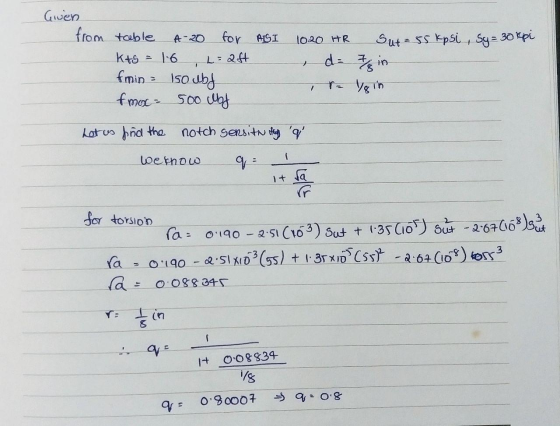 Given
from table A-20 for AISI 1020 HR Sut = 55 kpsi, Sy = 30 kpi
Kts = 1.6, L = 2ft, d = 7/8 in
fmin = 150 lbf, r = 1/8 in
fmax = 500 lbf
Let us find the notch sensitivity 'q'
we know q = 1 / (1 + √a/√r)
for torsion
√a = 0.190 - 2.51(10⁻³) Sut + 1.35(10⁻⁵) Sut² - 2.67(10⁻⁸) Sut³
√a = 0.190 - 2.51×10⁻³(55) + 1.35×10⁻⁵(55)² - 2.67(10⁻⁸) 55³
√a = 0.088345
r = 1/8 in
∴ q = 1 / (1 + 0.08834 / 1/8)
q = 0.80007 ⇒ q = 0.8